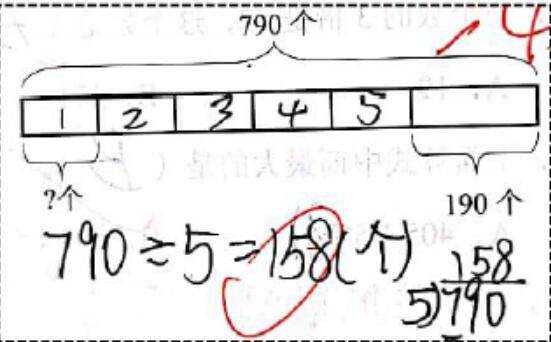 790个
4
1 2 3 4 5
?个 190个
790÷5=158(个)
158
5)790